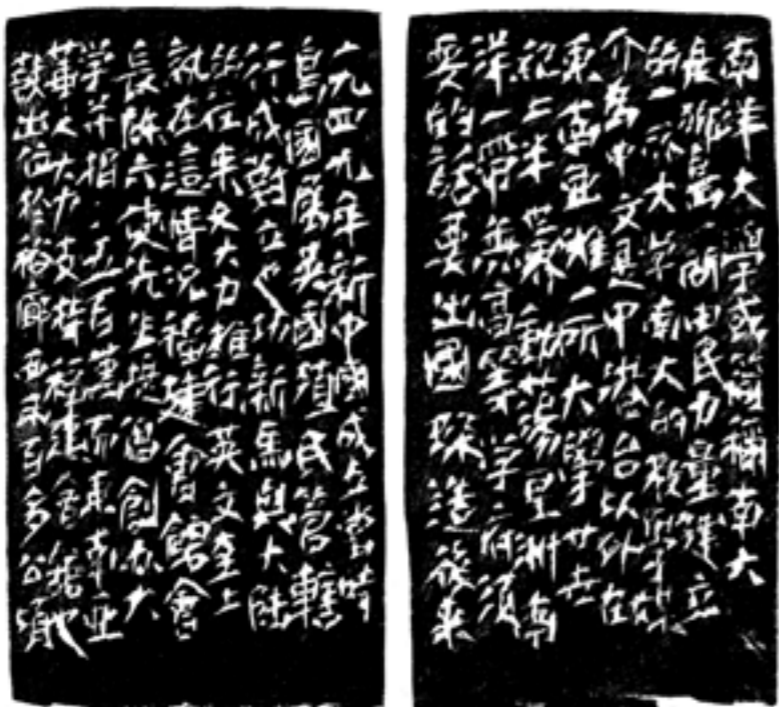 南洋大學或簡稱南大
是獅島一間由民力量建立
的一所大学南大的教
介為中文是中港台以外在
東南亞唯一所大學廿世
紀上半世界動蕩星洲南
洋一帶無高等学府須
要的話要出國深造後来
一九四九年新中國成立當時
島國属英國殖民管轄
行成對立也切新馬與大陸
的往来又大力推行英文至上
執在這情况福建會館會
長陳六使先生提倡創办大
学并捐五百萬而東南亞
華人大力支持福建會館也
献出位於裕廊西五百多公頃